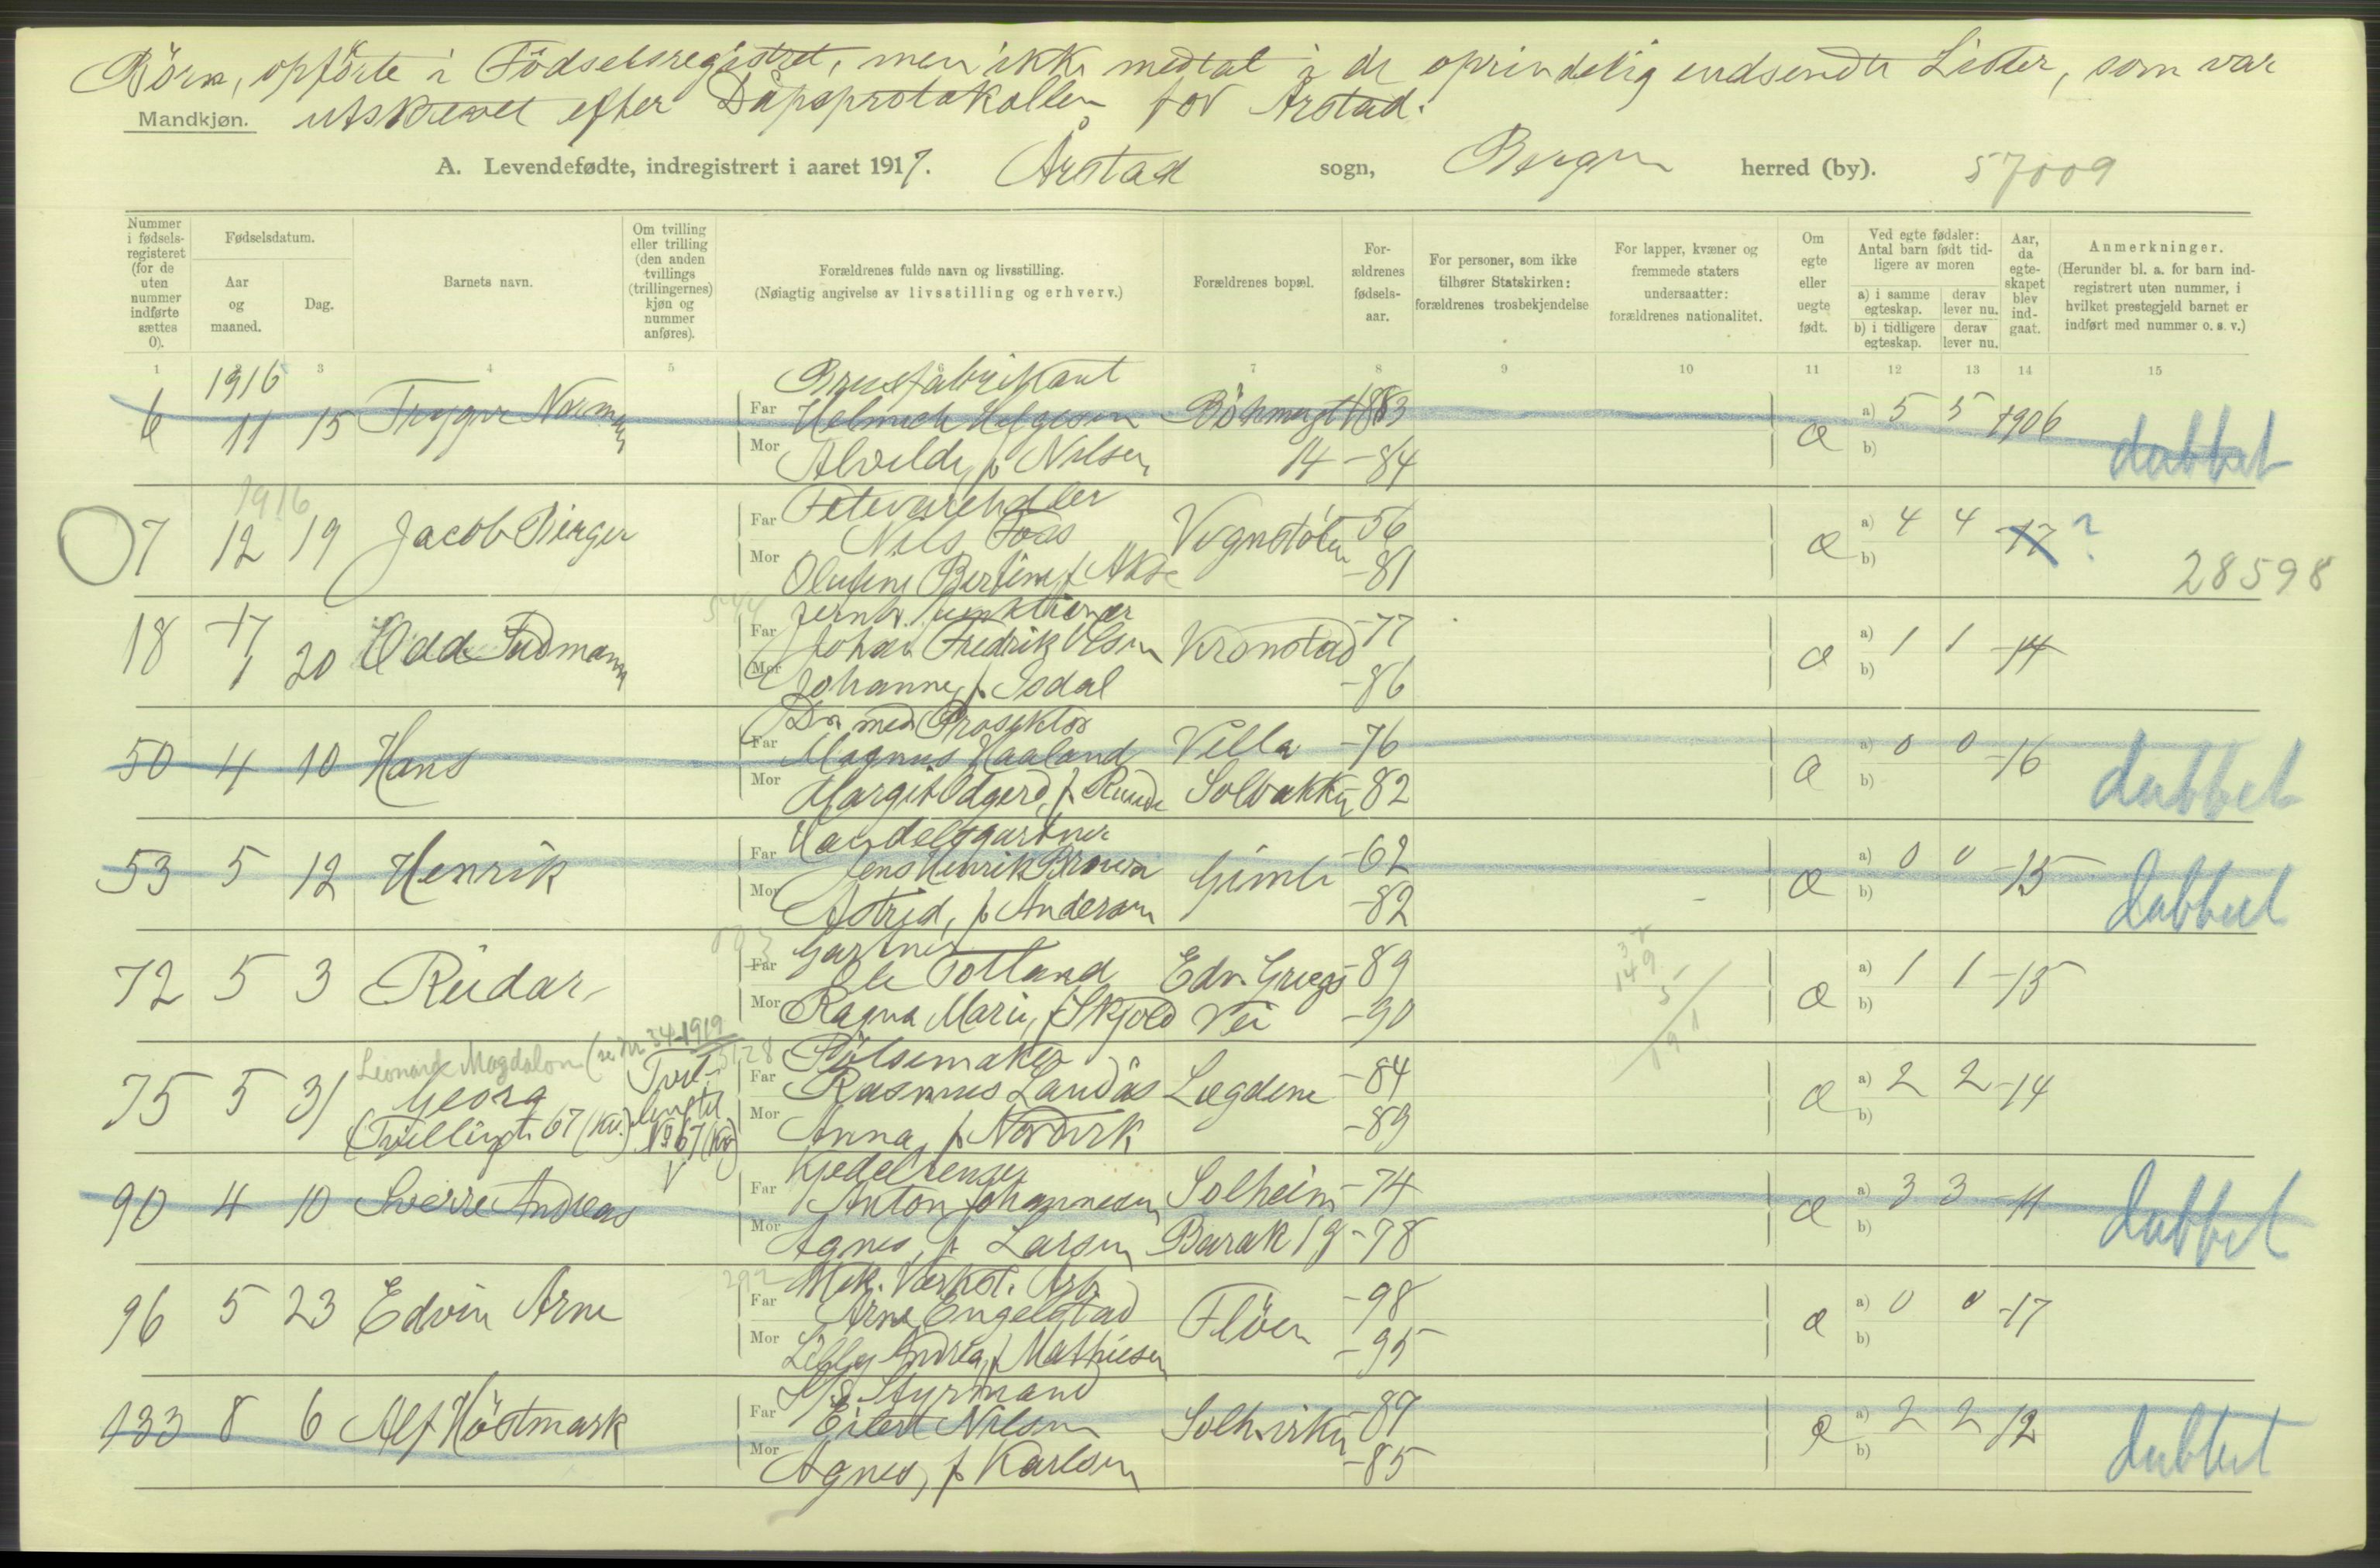 Börn, opförte i Födselsregistret, men ikke medtat i de oprindelig indsendte Lister, som var
utskrevet efter Dåpsprotokollen for Årstad.
Mandkjøn.
A. Levendefødte, indregistrert i aaret 1917. Årstad sogn, Bergen herred (by). 57009
Nummer i fødsels-registeret (for de uten nummer indførte sættes 0).
Fødselsdatum.
Aar og maaned.
Dag.
Barnets navn.
Om tvilling eller trilling (den anden tvillings (trillingernes) kjøn og nummer anføres).
Forældrenes fulde navn og livsstilling.
(Nøiagtig angivelse av livsstilling og erhverv.)
Forældrenes bopæl.
For-ældrenes fødsels-aar.
For personer, som ikke tilhører Statskirken: forældrenes trosbekjendelse
For lapper, kvæner og fremmede staters undersaatter: forældrenes nationalitet.
Om egte eller uegte født.
Ved egte fødsler: Antal barn født tid-ligere av moren
a) i samme egteskap. derav lever nu.
b) i tidligere egteskap. derav lever nu.
Aar, da egte-skapet blev ind-gaat.
Anmerkninger.
(Herunder bl. a. for barn ind-registrert uten nummer, i hvilket prestegjeld barnet er indført med nummer o. s. v.)
1 3 4 5 7 8 9 10 11 12 13 14 15
1916
Brusfabrikant
6 11 15 Trygve Norman Far Helmich Helgesen Böhmergt 1883 Æ a) 5 5 1906 dubbet
Mor Alvilde, f. Nilsen 14 -84 b)
1916
Fetevarehdler
7 12 19 Jacob Birger Far Nils Foss Vognstölen -56 Æ a) 4 4 -17 ?
Mor Olufine Bertine f. Akse -81 b) 28598
544 Jernb. funktionær
18 -17 1 20 Odd Fridmann Far Johan Fredrik Olsen Kronstad -77 Æ a) 1 1 -14
Mor Johanne, f. Isdal -86 b)
Dr. med Prosektor
50 4 10 Hans Far Magnus Haaland Villa -76 Æ a) 0 0 -16 dubbet
Mor Margit Odgerd, f. Runde Solbakken -82 b)
Handelsgartner
53 5 12 Henrik Far Jens Henrik Broun Gimle -62 Æ a) 0 0 -15 dubbet
Mor Astrid, f. Andersen -82 b)
Gartner
72 5 3 Reidar Far Ole Totland Edv. Griegs -89 Æ a) 1 1 -15
Mor Ragna Marie, f. Skjold Vei -90 b)
Leonard Magdalon (se Nr 34 1919
3128 Pölsemaker
75 5 31 Georg Tvil- Far Rasmus Landås Lægdene -84 Æ a) 2 2 -14
(Tvilling t. 67 (kv.) ling til No 67 (kv) Mor Anna, f. Nordvik -89 b)
Kjedelrenser
90 4 10 Sverre Andreas Far Anton Johannesen Solheim -74 Æ a) 3 3 -11 dubbet
Mor Agnes, f. Larsen Barak 19 -78 b)
292 Mek. Værkst. Arb.
96 5 23 Edvin Arne Far Arne Engelstad Flöen -98 Æ a) 0 0 -17
Mor Lilly Andrea, f. Mathiesen -95 b)
Styrmand
133 8 6 Alf Höstmark Far Eilert Nilsen Solheimsvik -87 Æ a) 2 2 12 dubbet
Mor Agnes, f. Karlsen -85 b)